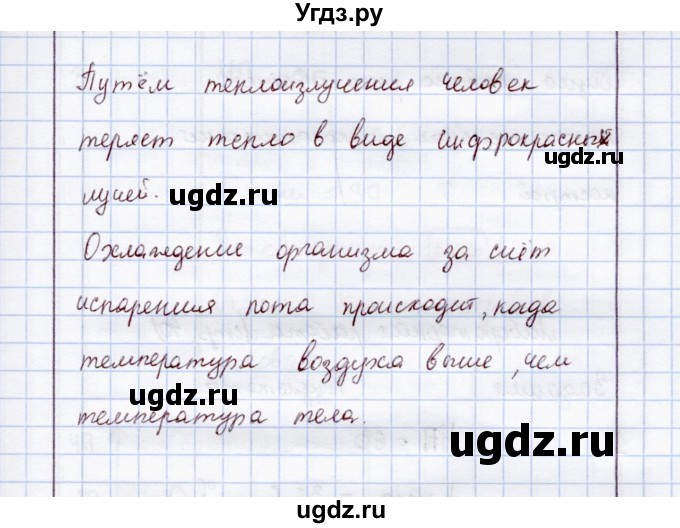 Угдз.ру
Путём теплоизлучения человек
теряет тепло в виде инфрокрасных
ugdz.ru
лучей.
ugdz.ru
Охлаждение организма за счёт
испарения пота происходит, когда
температура воздуха выше, чем
температура тела.
ugdz.ru
ugdz.ru